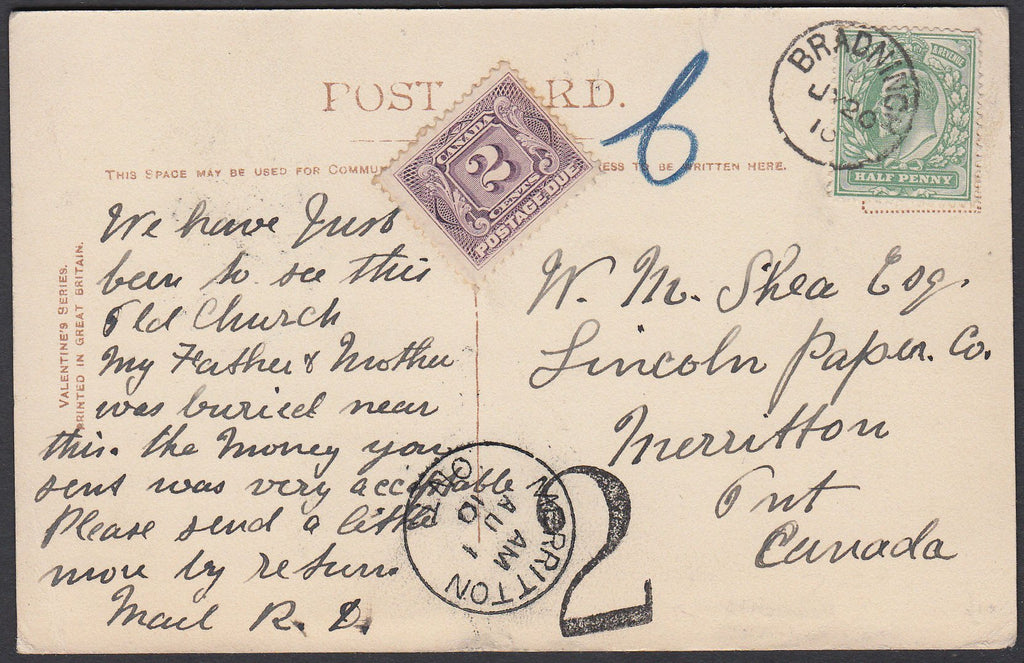 POST CARD.
THIS SPACE MAY BE USED FOR COMMU
ESS TO BE WRITTEN HERE.
VALENTINE'S SERIES.
PRINTED IN GREAT BRITAIN.
CANADA
2
CENTS
POSTAGE DUE
6
BRADNINCH
JY 20
10
& REVENUE
HALF PENNY
We have Just
been to see this
Old Church
My Father & Mother
was buried near
this. the Money you
sent was very acceptable
Please send a little
more by return
Mail R. D.
W. M. Shea Esq.
Lincoln Paper. Co.
Merritton
Ont
Canada
MERRITTON
AM
AU 1
10
ONT
2